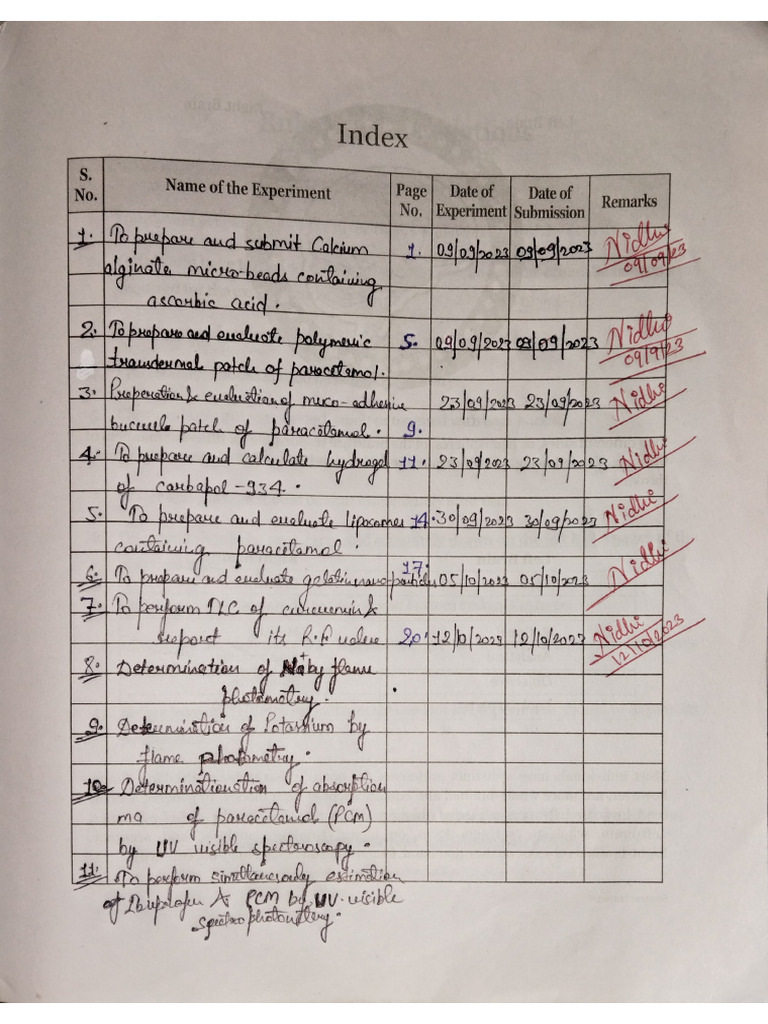 Index
S. No. Name of the Experiment Page No. Date of Experiment Date of Submission Remarks
1. To prepare and submit Calcium 1. 09/09/2023 09/09/2023 Nidhi
alginate micro-beads containing 09/09/23
ascorbic acid.
2. To prepare and evaluate polymeric 5. 09/09/2023 09/09/2023 Nidhi
transdermal patch of paracetamol. 09/9/23
3. Preperation & evaluation of muco-adhesive 23/09/2023 23/09/2023 Nidhi
patch of paracetamol. 9.
4. To prepare and calculate hydrogel 11. 23/09/2023 23/09/2023 Nidhi
of carbapol-934.
5. To prepare and evaluate liposomes 14. 30/09/2023 30/09/2023 Nidhi
containing paracetamol.
6. To prepare and evaluate gelatin nano particles 17. 05/10/2023 05/10/2023 Nidhi
7. To perform TLC of curcumin & Nidhi
report its R.F value 20. 12/10/2023 12/10/2023 12/10/2023
8. Determination of Na+ by flame
photometry.
9. Determination of Potassium by
flame photometry.
10. of absorption
ma of paracetamol (PCM)
by UV visible spectroscopy.
11. To perform simultaneously estimation
of Ibuprofen & PCM by UV-visible
spectrophotometry.